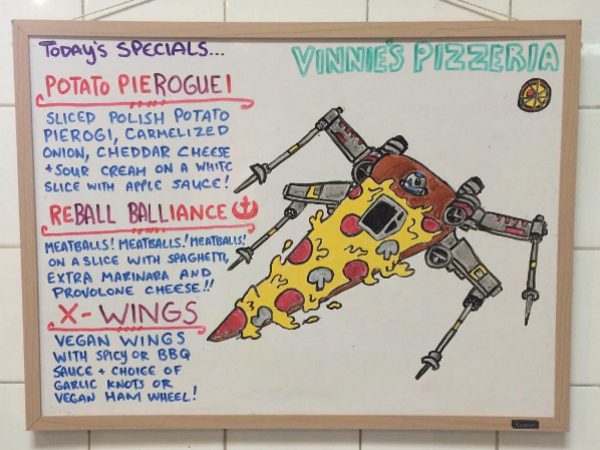 TODAY'S SPECIALS...
VINNIE'S PIZZERIA
POTATO PIEROGUE!
SLICED POLISH POTATO
PIEROGI, CARMELIZED
ONION, CHEDDAR CHEESE
+ SOUR CREAM ON A WHITE
SLICE WITH APPLE SAUCE!
REBALL BALLIANCE
MEATBALLS! MEATBALLS! MEATBALLS!
ON A SLICE WITH SPAGHETTI,
EXTRA MARINARA AND
PROVOLONE CHEESE!!
X-WINGS
VEGAN WINGS
WITH SPICY OR BBQ
SAUCE + CHOICE OF
GARLIC KNOTS OR
VEGAN HAM WHEEL!